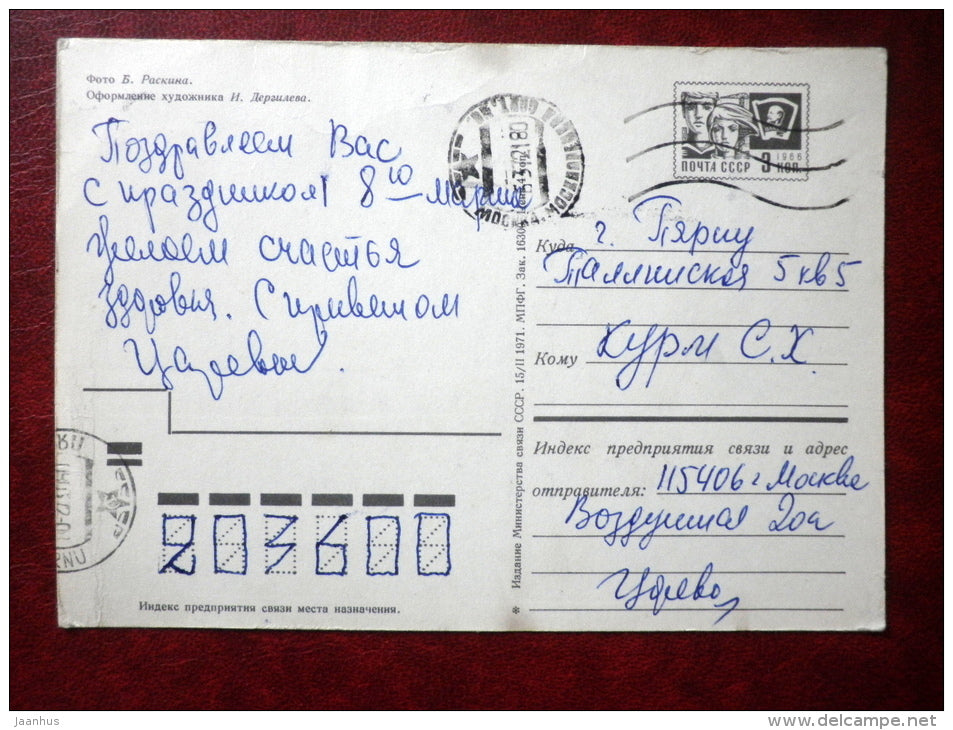 Фото Б. Раскина.
Оформление художника И. Дергилева.
Поздравляем Вас
с праздником 8ю марта
Желаем счастья
здоровья. С приветом
1966
ПОЧТА СССР 3 КОП.
МОСКВА
Куда г. Пярну
Таллинская 5 кв 5
Кому Курм С.Х.
Индекс предприятия связи и адрес
отправителя: 115406 г Москва
Воздушная 20а
203600
Индекс предприятия связи места назначения.
* Издание Министерства связи СССР. 15/II 1971. МПФГ. Зак. 1630
jaanhus
www.delcampe.net